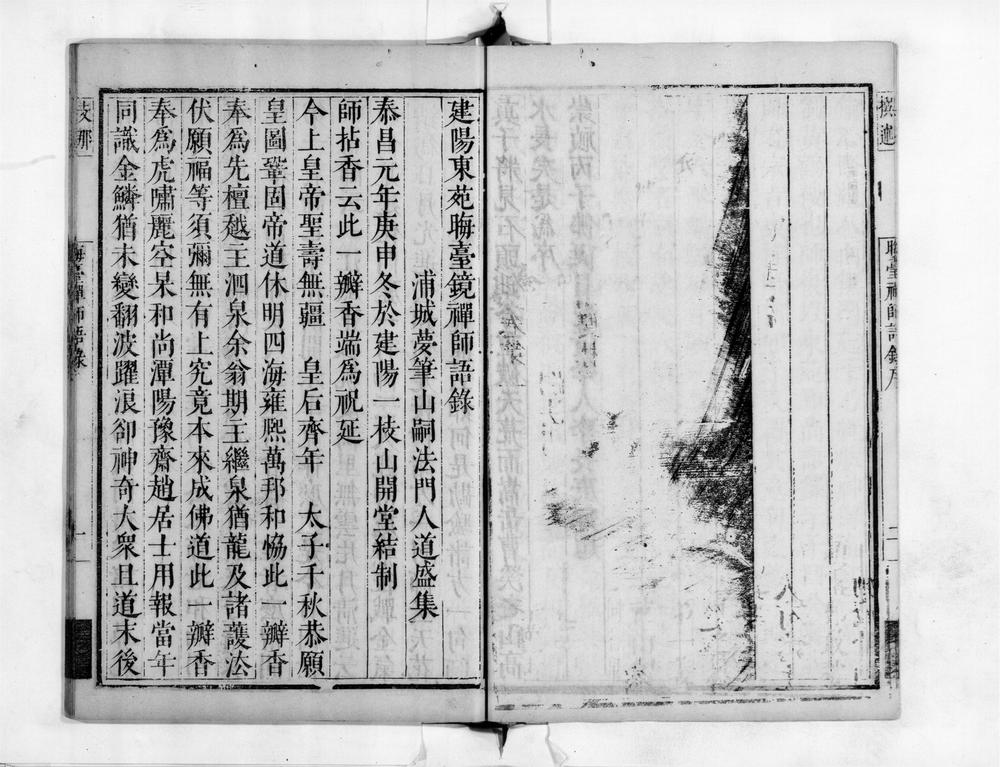 撰述
晦臺禪師語錄序
二
建陽東苑晦臺鏡禪師語錄
浦城夢筆山嗣法門人道盛集
泰昌元年庚申冬於建陽一枝山開堂結制
師拈香云此一瓣香端為祝延
今上皇帝聖壽無疆 皇后齊年 太子千秋恭願
皇圖鞏固帝道休明四海雍熈萬邦和恊此一瓣香
奉為先檀越主泗泉余翁期主繼泉猶龍及諸護法
伏願福等須彌無有上究竟本來成佛道此一瓣香
奉為虎嘯麗空杲和尚潭陽豫齋趙居士用報當年
同識金鱗猶未變翻波躍浪卻神奇大眾且道末後
支那
晦臺禪師語錄
一